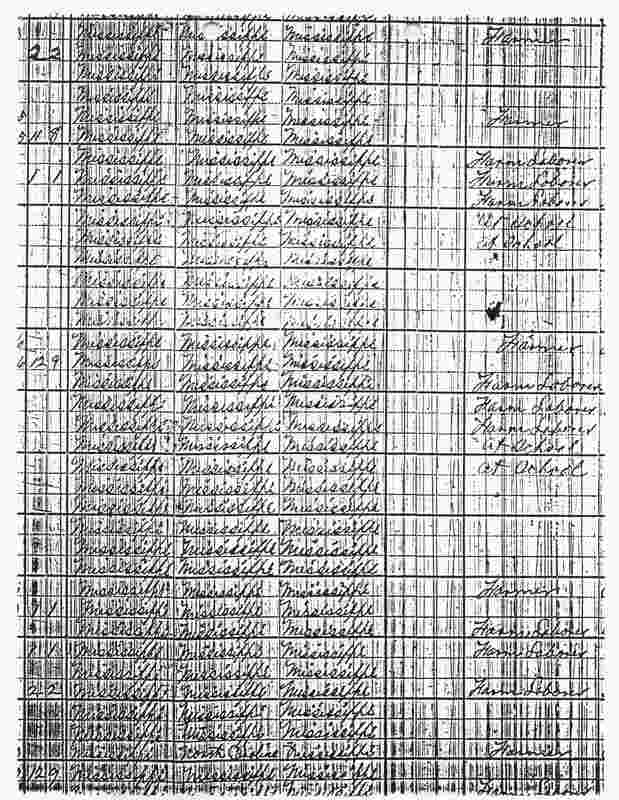 Mississippi Mississippi Mississippi Farmer
2 2 Mississippi Mississippi Mississippi
Mississippi Mississippi Mississippi
Mississippi Mississippi Mississippi
Mississippi Mississippi Mississippi Farmer
11 9 Mississippi Mississippi Mississippi
Mississippi Mississippi Mississippi Farm Laborer
1 1 Mississippi Mississippi Mississippi Farm Laborer
Mississippi Mississippi Mississippi Farm Laborer
Mississippi Mississippi Mississippi At School
Mississippi Mississippi Mississippi At School
Mississippi Mississippi Mississippi
Mississippi Mississippi Mississippi
Mississippi Mississippi Mississippi
Mississippi Mississippi Mississippi
Mississippi Mississippi Mississippi Farmer
12 9 Mississippi Mississippi Mississippi
Mississippi Mississippi Mississippi Farm Laborer
Mississippi Mississippi Mississippi Farm Laborer
Mississippi Mississippi Mississippi Farm Laborer
Mississippi Mississippi Mississippi At School
Mississippi Mississippi Mississippi At School
Mississippi Mississippi Mississippi
Mississippi Mississippi Mississippi
Mississippi Mississippi Mississippi
Mississippi Mississippi Mississippi
Mississippi Mississippi Mississippi
Mississippi Mississippi Mississippi Farmer
1 Mississippi Mississippi Mississippi
Mississippi Mississippi Mississippi Farm Laborer
1 1 Mississippi Mississippi Mississippi Farm Laborer
Mississippi Mississippi Mississippi
2 2 Mississippi Mississippi Mississippi Farm Laborer
Mississippi Mississippi Mississippi
Mississippi Mississippi Mississippi
Mississippi Mississippi Farmer
12 9 Mississippi Mississippi Mississippi